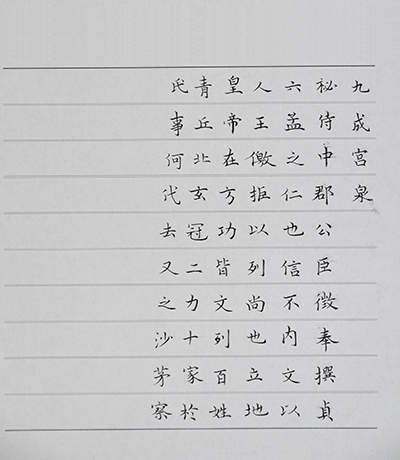 九成宮泉
秘侍中郡公臣徵奉撰貞
六孟之仁也信不内文以
人王儌拒以列尚也立地
皇帝在方功皆文列百姓
青丘北玄冠二力十家於
氏事何代去又之沙茅察